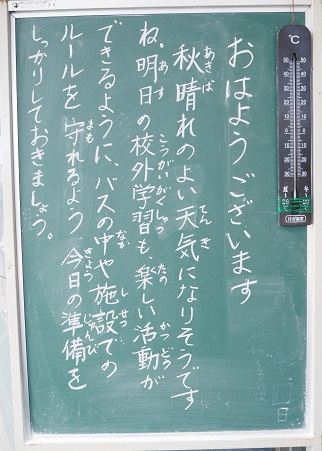 おはようございます
秋晴れのよい天気になりそうです
ね。明日の校外学習も、楽しい活動が
できるように、バスの中や施設での
ルールを守れるよう、今日の準備を
しっかりしておきましょう。
あきば
てんき
あす
こうがいがくしゅう
たの
かつどう
なか
しせつ
まも
きょう
じゅんび
日
℃
50 50
40 40
30 30
20 20
10 10
0 0
10 10
20 20
30 30
夏 冬